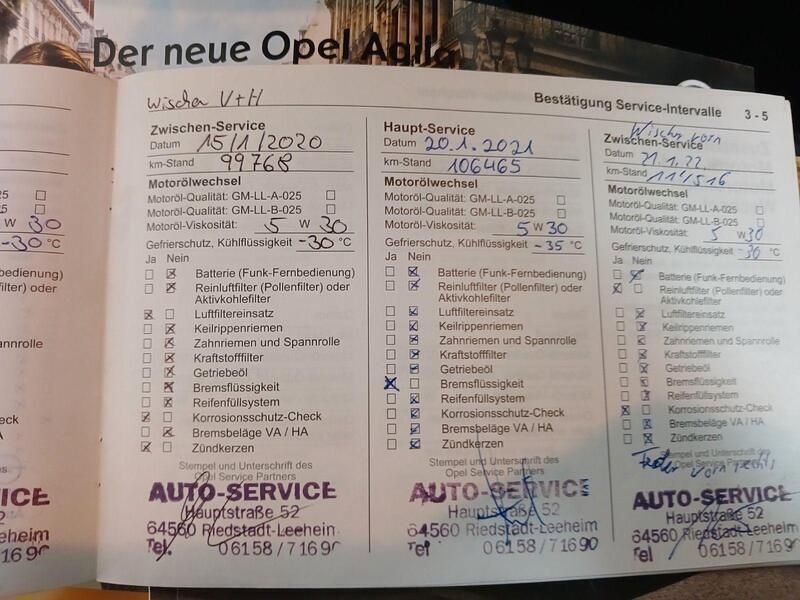 Der neue Opel Agila
Wischer V+H
Bestätigung Service-Intervalle 3 - 5
025
025
W 30
-30 °C
bedienung)
ilter) oder
nnrolle
eck
HA
VICE
52
Leeheim
7 16 90
Zwischen-Service
Datum 15/1/2020
km-Stand 99768
Motorölwechsel
Motoröl-Qualität: GM-LL-A-025 ☐
Motoröl-Qualität: GM-LL-B-025 ☐
Motoröl-Viskosität: 5 W 30
Gefrierschutz, Kühlflüssigkeit -30 °C
Ja Nein
☐ ☒ Batterie (Funk-Fernbedienung)
☐ ☒ Reinluftfilter (Pollenfilter) oder
Aktivkohlefilter
☒ ☐ Luftfiltereinsatz
☐ ☒ Keilrippenriemen
☐ ☒ Zahnriemen und Spannrolle
☐ ☒ Kraftstofffilter
☐ ☒ Getriebeöl
☐ ☒ Bremsflüssigkeit
☐ ☒ Reifenfüllsystem
☒ ☐ Korrosionsschutz-Check
☐ ☒ Bremsbeläge VA / HA
☒ ☐ Zündkerzen
Stempel und Unterschrift des
Opel Service Partners
AUTO-SERVICE
Hauptstraße 52
64560 Riedstadt-Leeheim
Tel. 0 61 58 / 7 16 90
Haupt-Service
Datum 20.1.2021
km-Stand 106465
Motorölwechsel
Motoröl-Qualität: GM-LL-A-025 ☐
Motoröl-Qualität: GM-LL-B-025 ☐
Motoröl-Viskosität: 5 W 30
Gefrierschutz, Kühlflüssigkeit -35 °C
Ja Nein
☐ ☒ Batterie (Funk-Fernbedienung)
☐ ☒ Reinluftfilter (Pollenfilter) oder
Aktivkohlefilter
☐ ☒ Luftfiltereinsatz
☐ ☒ Keilrippenriemen
☐ ☒ Zahnriemen und Spannrolle
☐ ☒ Kraftstofffilter
☐ ☒ Getriebeöl
☒ ☐ Bremsflüssigkeit
☐ ☒ Reifenfüllsystem
☐ ☒ Korrosionsschutz-Check
☐ ☒ Bremsbeläge VA / HA
☐ ☒ Zündkerzen
Stempel und Unterschrift des
Opel Service Partners
AUTO-SERVICE
Hauptstraße 52
64560 Riedstadt-Leeheim
Tel 0 61 58 / 7 16 90
Wischer vorn
Zwischen-Service
Datum 21.1.22
km-Stand 114516
Motorölwechsel
Motoröl-Qualität: GM-LL-A-025 ☐
Motoröl-Qualität: GM-LL-B-025 ☐
Motoröl-Viskosität: 5 W 30
Gefrierschutz, Kühlflüssigkeit -30 °C
Ja Nein
☐ ☒ Batterie (Funk-Fernbedienung)
☒ ☐ Reinluftfilter (Pollenfilter) oder
Aktivkohlefilter
☐ ☒ Luftfiltereinsatz
☐ ☒ Keilrippenriemen
☐ ☒ Zahnriemen und Spannrolle
☐ ☒ Kraftstofffilter
☐ ☒ Getriebeöl
☐ ☒ Bremsflüssigkeit
☐ ☒ Reifenfüllsystem
☒ ☐ Korrosionsschutz-Check
☐ ☒ Bremsbeläge VA / HA
☐ ☒ Zündkerzen
Stempel und Unterschrift des
Feder vorn
Opel Service Partners
AUTO-SERVICE
Hauptstraße 52
64560 Riedstadt-Leeheim
Tel 0 61 58 / 7 16 90